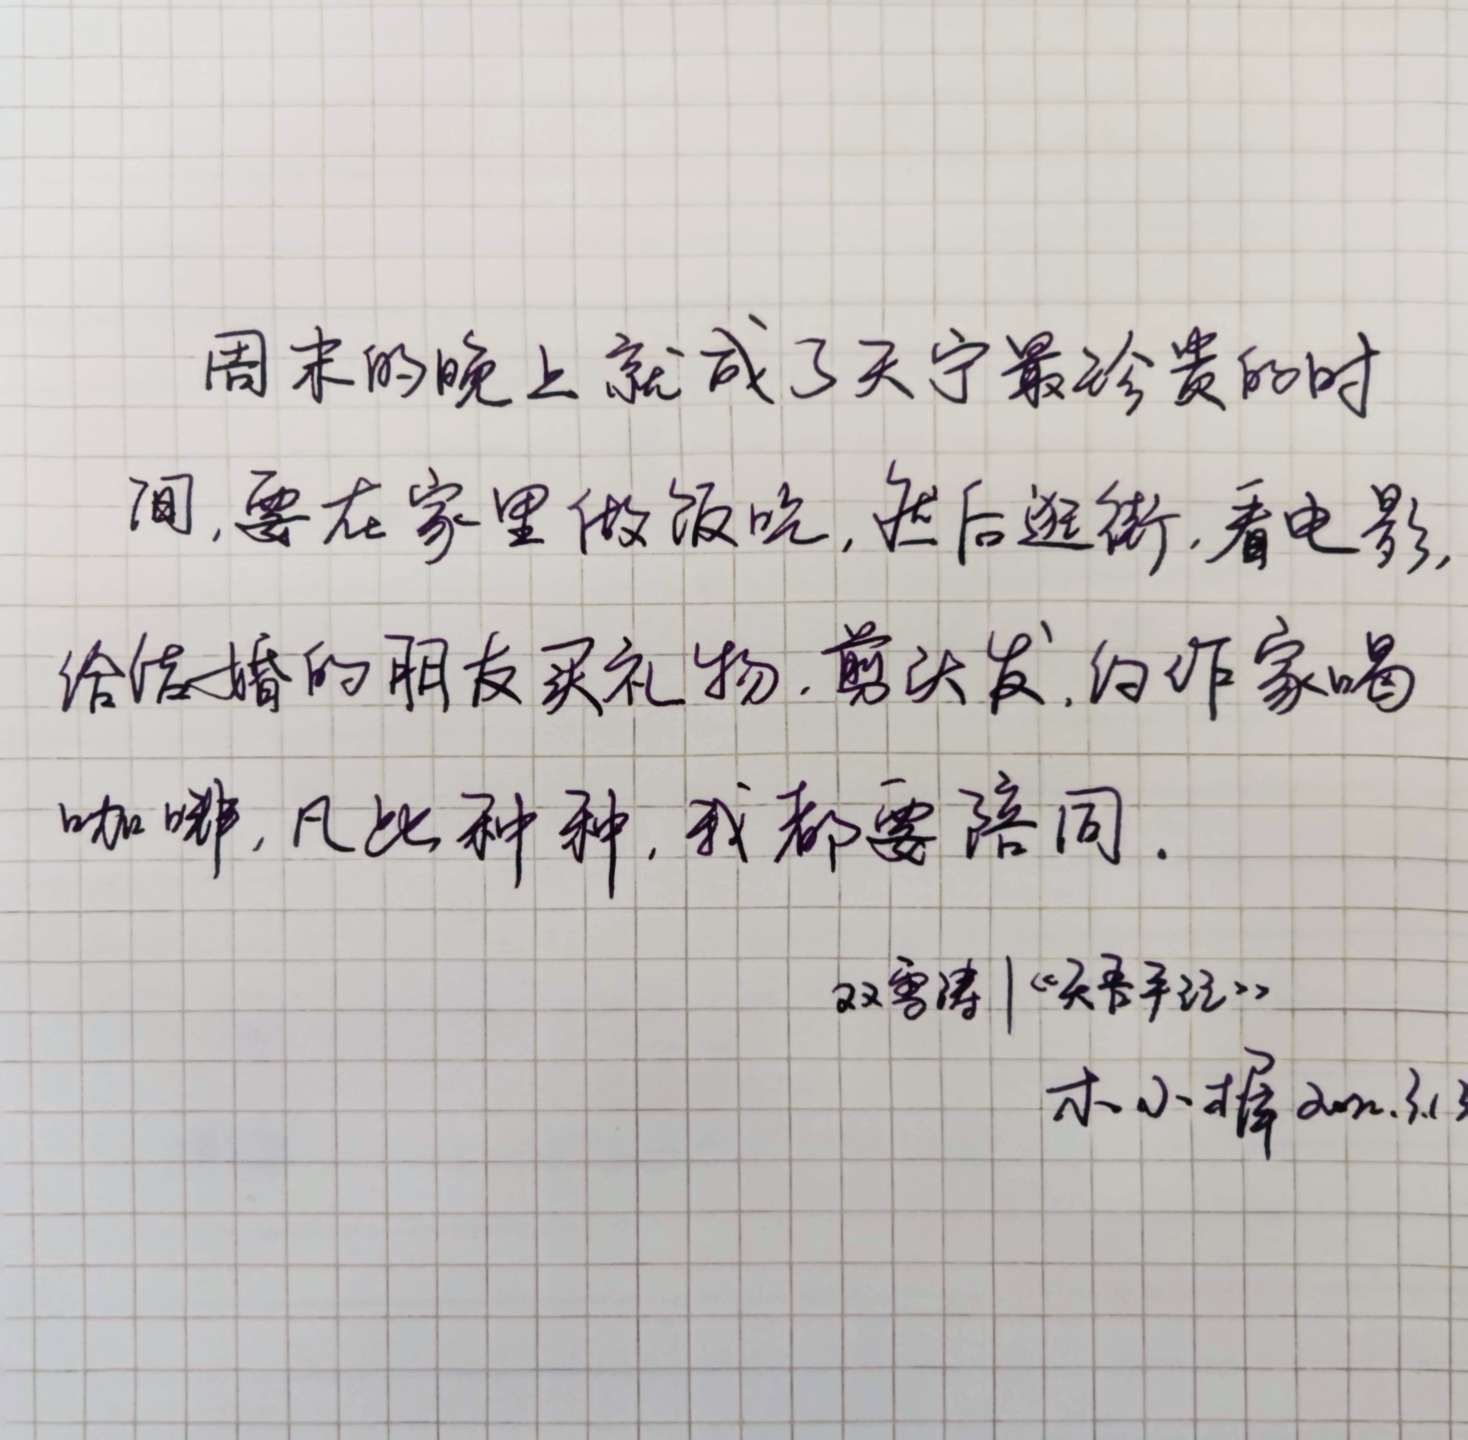 周末的晚上就成了天宁最珍贵的时
间,要在家里做饭吃,然后逛街,看电影,
给结婚的朋友买礼物,剪头发,约作家喝
咖啡,凡此种种,我都要陪同.
双雪涛|《天吾手记》
木小 2022.3.13